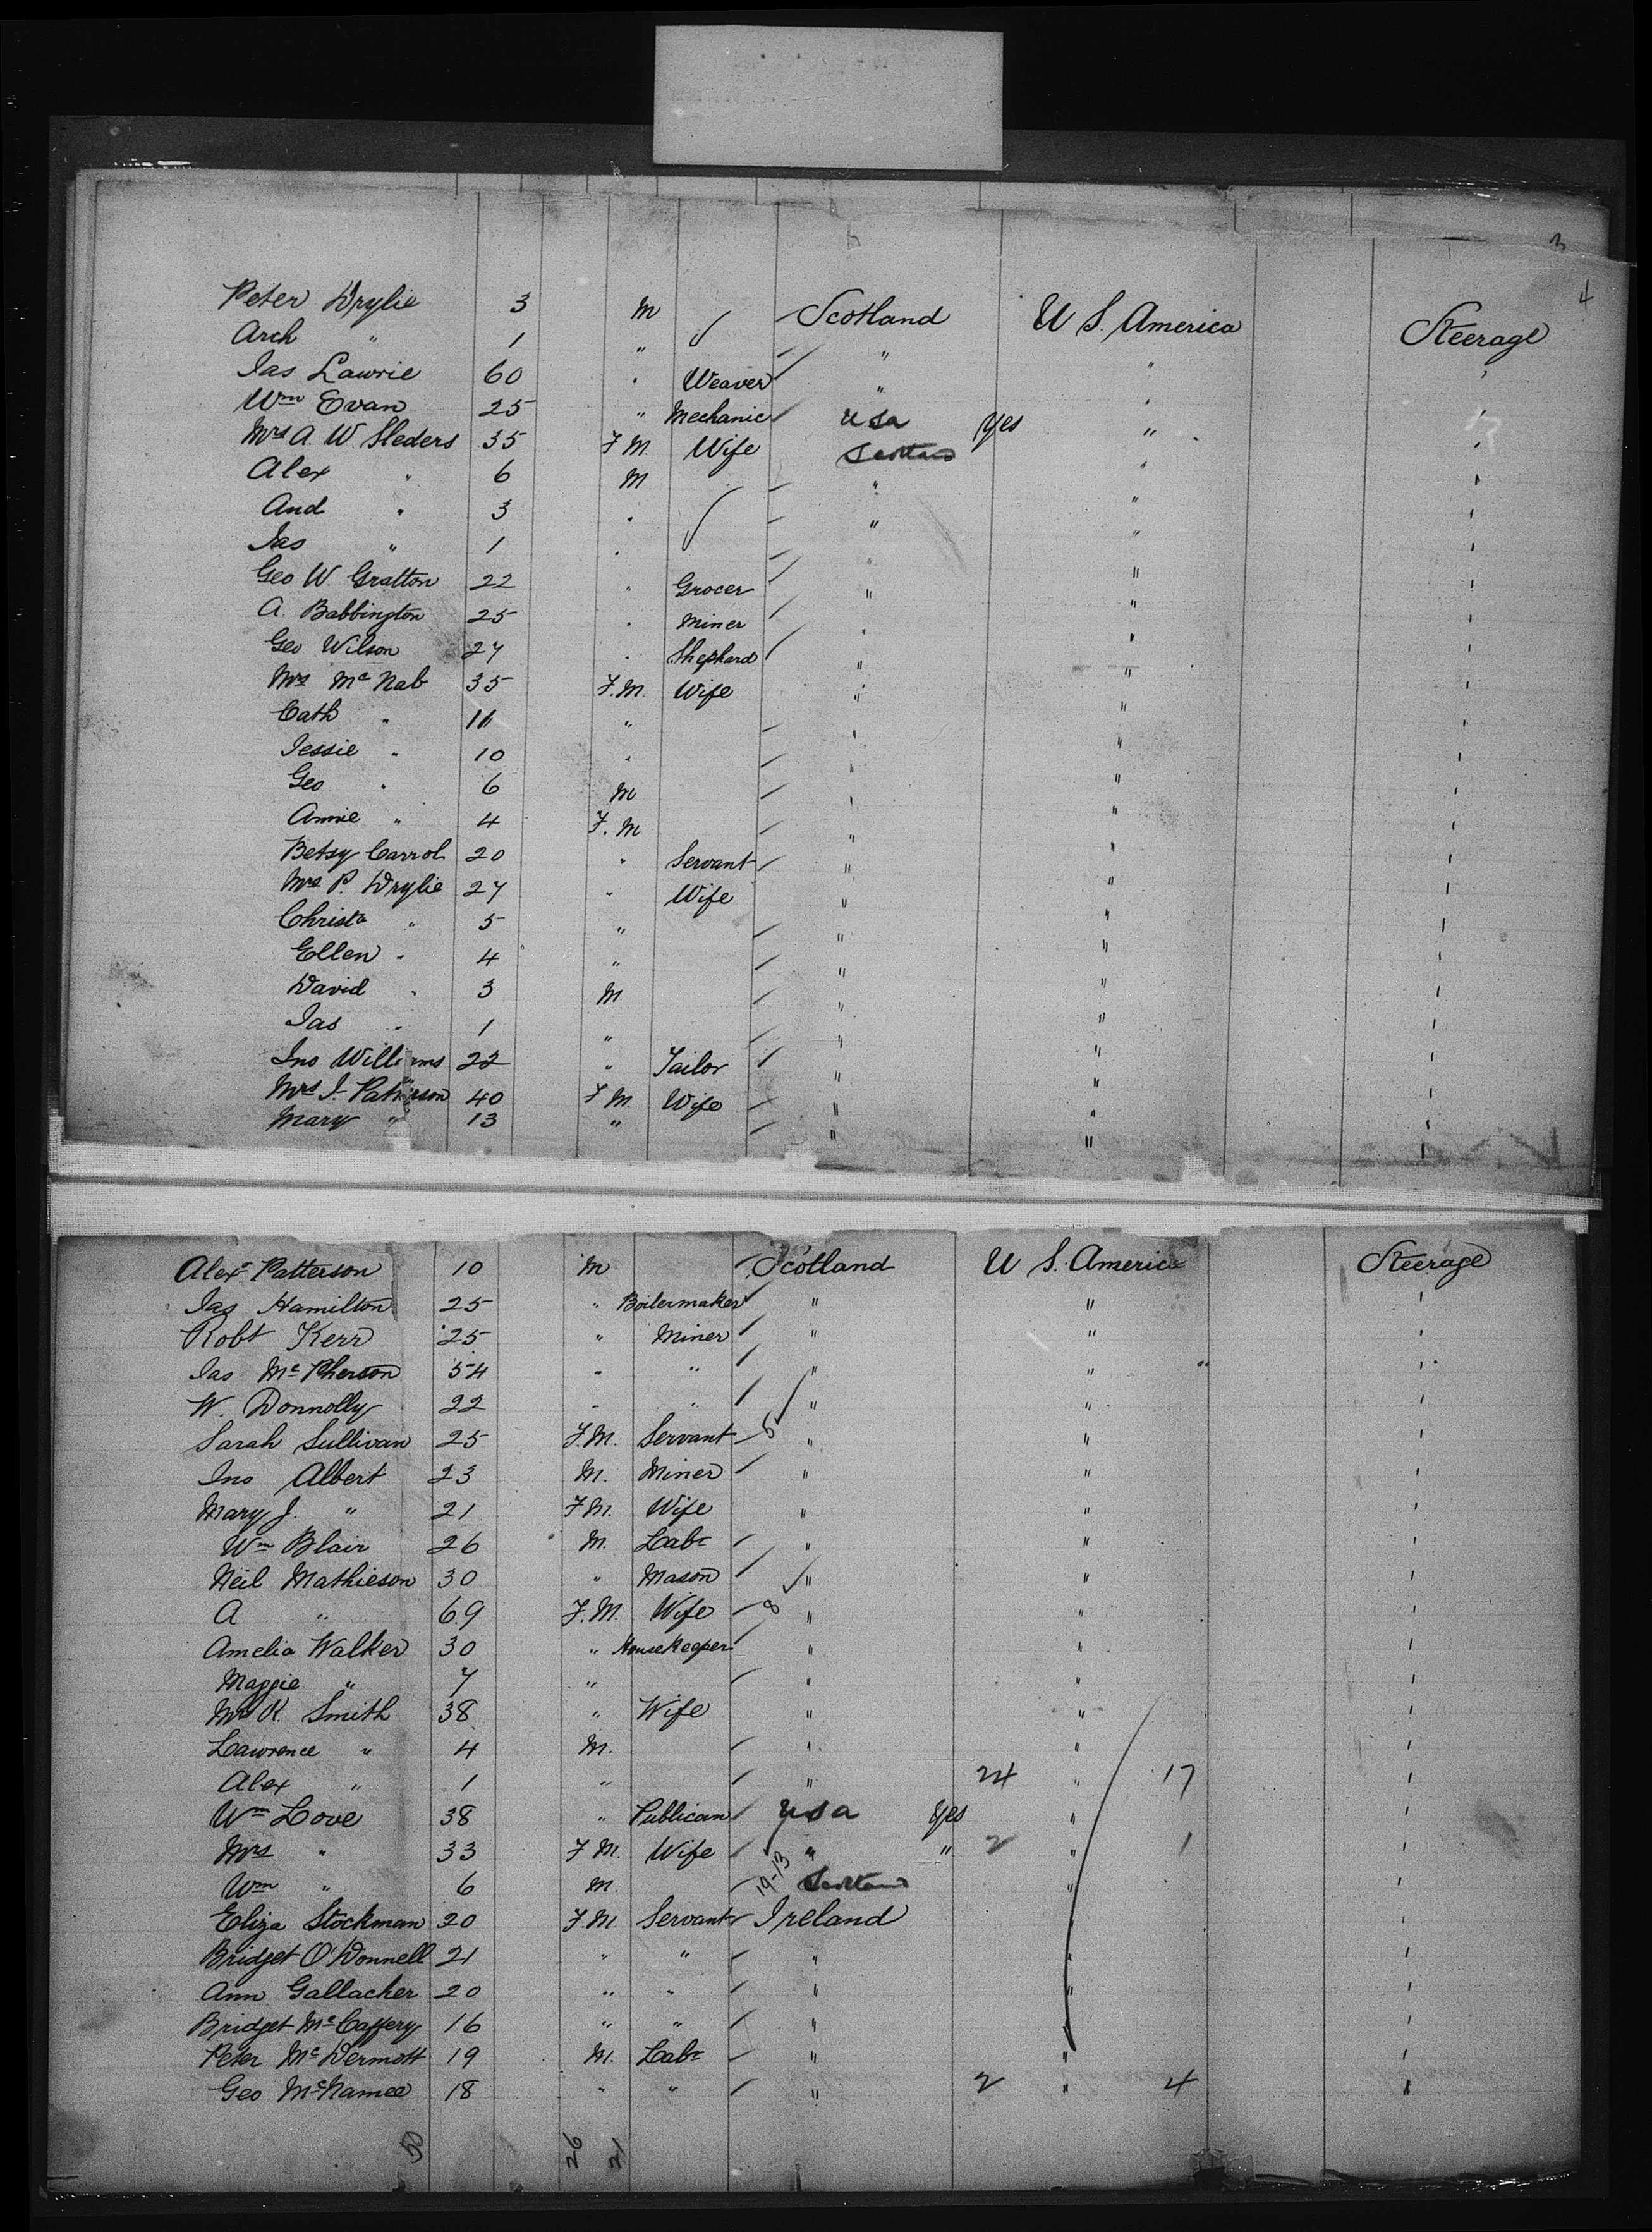 3
4
Peter Drylie 3 M Scotland U S. America Steerage
Arch " 1 " " " "
Jas Lawrie 60 " Weaver " " "
Wm Evan 25 " Mechanic USa Yes " "
Mrs A. W. Sleders 35 F M. Wife Scotland " "
Alex " 6 M " " "
And " 3 " " " "
Jas " 1 " " " "
Geo W. Gratton 22 " Grocer " " "
A. Babbington 25 " Miner " " "
Geo Wilson 27 " Shephard " " "
Mrs Mc Nab 35 F.M. Wife " " "
Cath " 11 " " " "
Jessie " 10 " " " "
Geo " 6 M " " "
Annie " 4 F. M " " "
Betsy Carrol 20 " Servant " " "
Mrs P. Drylie 27 " Wife " " "
Christa " 5 " " " "
Ellen " 4 " " " "
David " 3 M " " "
Jas " 1 " " " "
Jno Williams 22 " Tailor " " "
Mrs J. Paterson 40 F M. Wife " " "
Mary " 13 " " " "
Alexr Patterson 10 M Scotland U S. America Steerage
Jas Hamilton 25 " Boilermaker " " "
Robt Kerr 25 " Miner " " "
Jas Mc Pherson 54 " " " " "
W. Donnolly 22 " " " " "
Sarah Sullivan 25 F.M. Servant 5 " " "
Jno Albert 23 M. Miner " " "
Mary J. " 21 F M. Wife " " "
Wm Blair 26 M. Labr " " "
Neil Mathieson 30 " Mason " " "
A " 69 F.M. Wife 8 " " "
Amelia Walker 30 " HouseKeeper " " "
Maggie " 7 " " " "
Mrs R. Smith 38 " Wife " " "
Lawrence " 4 M. " " "
Alex " 1 " " 24 " 17 "
Wm Love 38 " Publican USa Yes " "
Mrs " 33 F M. Wife " " 2 " 1 "
Wm " 6 M. 19-13 Scotland " "
Eliza Stockman 20 F.M. Servant Ireland " "
Bridget O'Donnell 21 " " " " "
Ann Gallacher 20 " " " " "
Bridget Mc Caffery 16 " " " " "
Peter Mc Dermott 19 M. Labr " " "
Geo McNamee 18 " " " 2 " 4 "
50 26 21